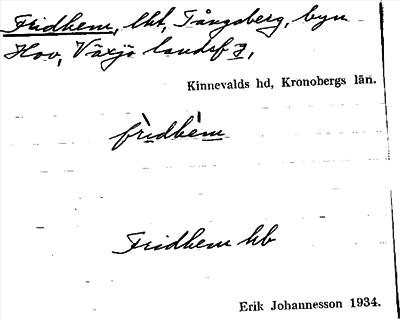 Fridhem, lht, Tångsberg, byn
Hov, Växjö landsf 3,
Kinnevalds hd, Kronobergs län.
frìdhém
Fridhem hb
Erik Johannesson 1934.